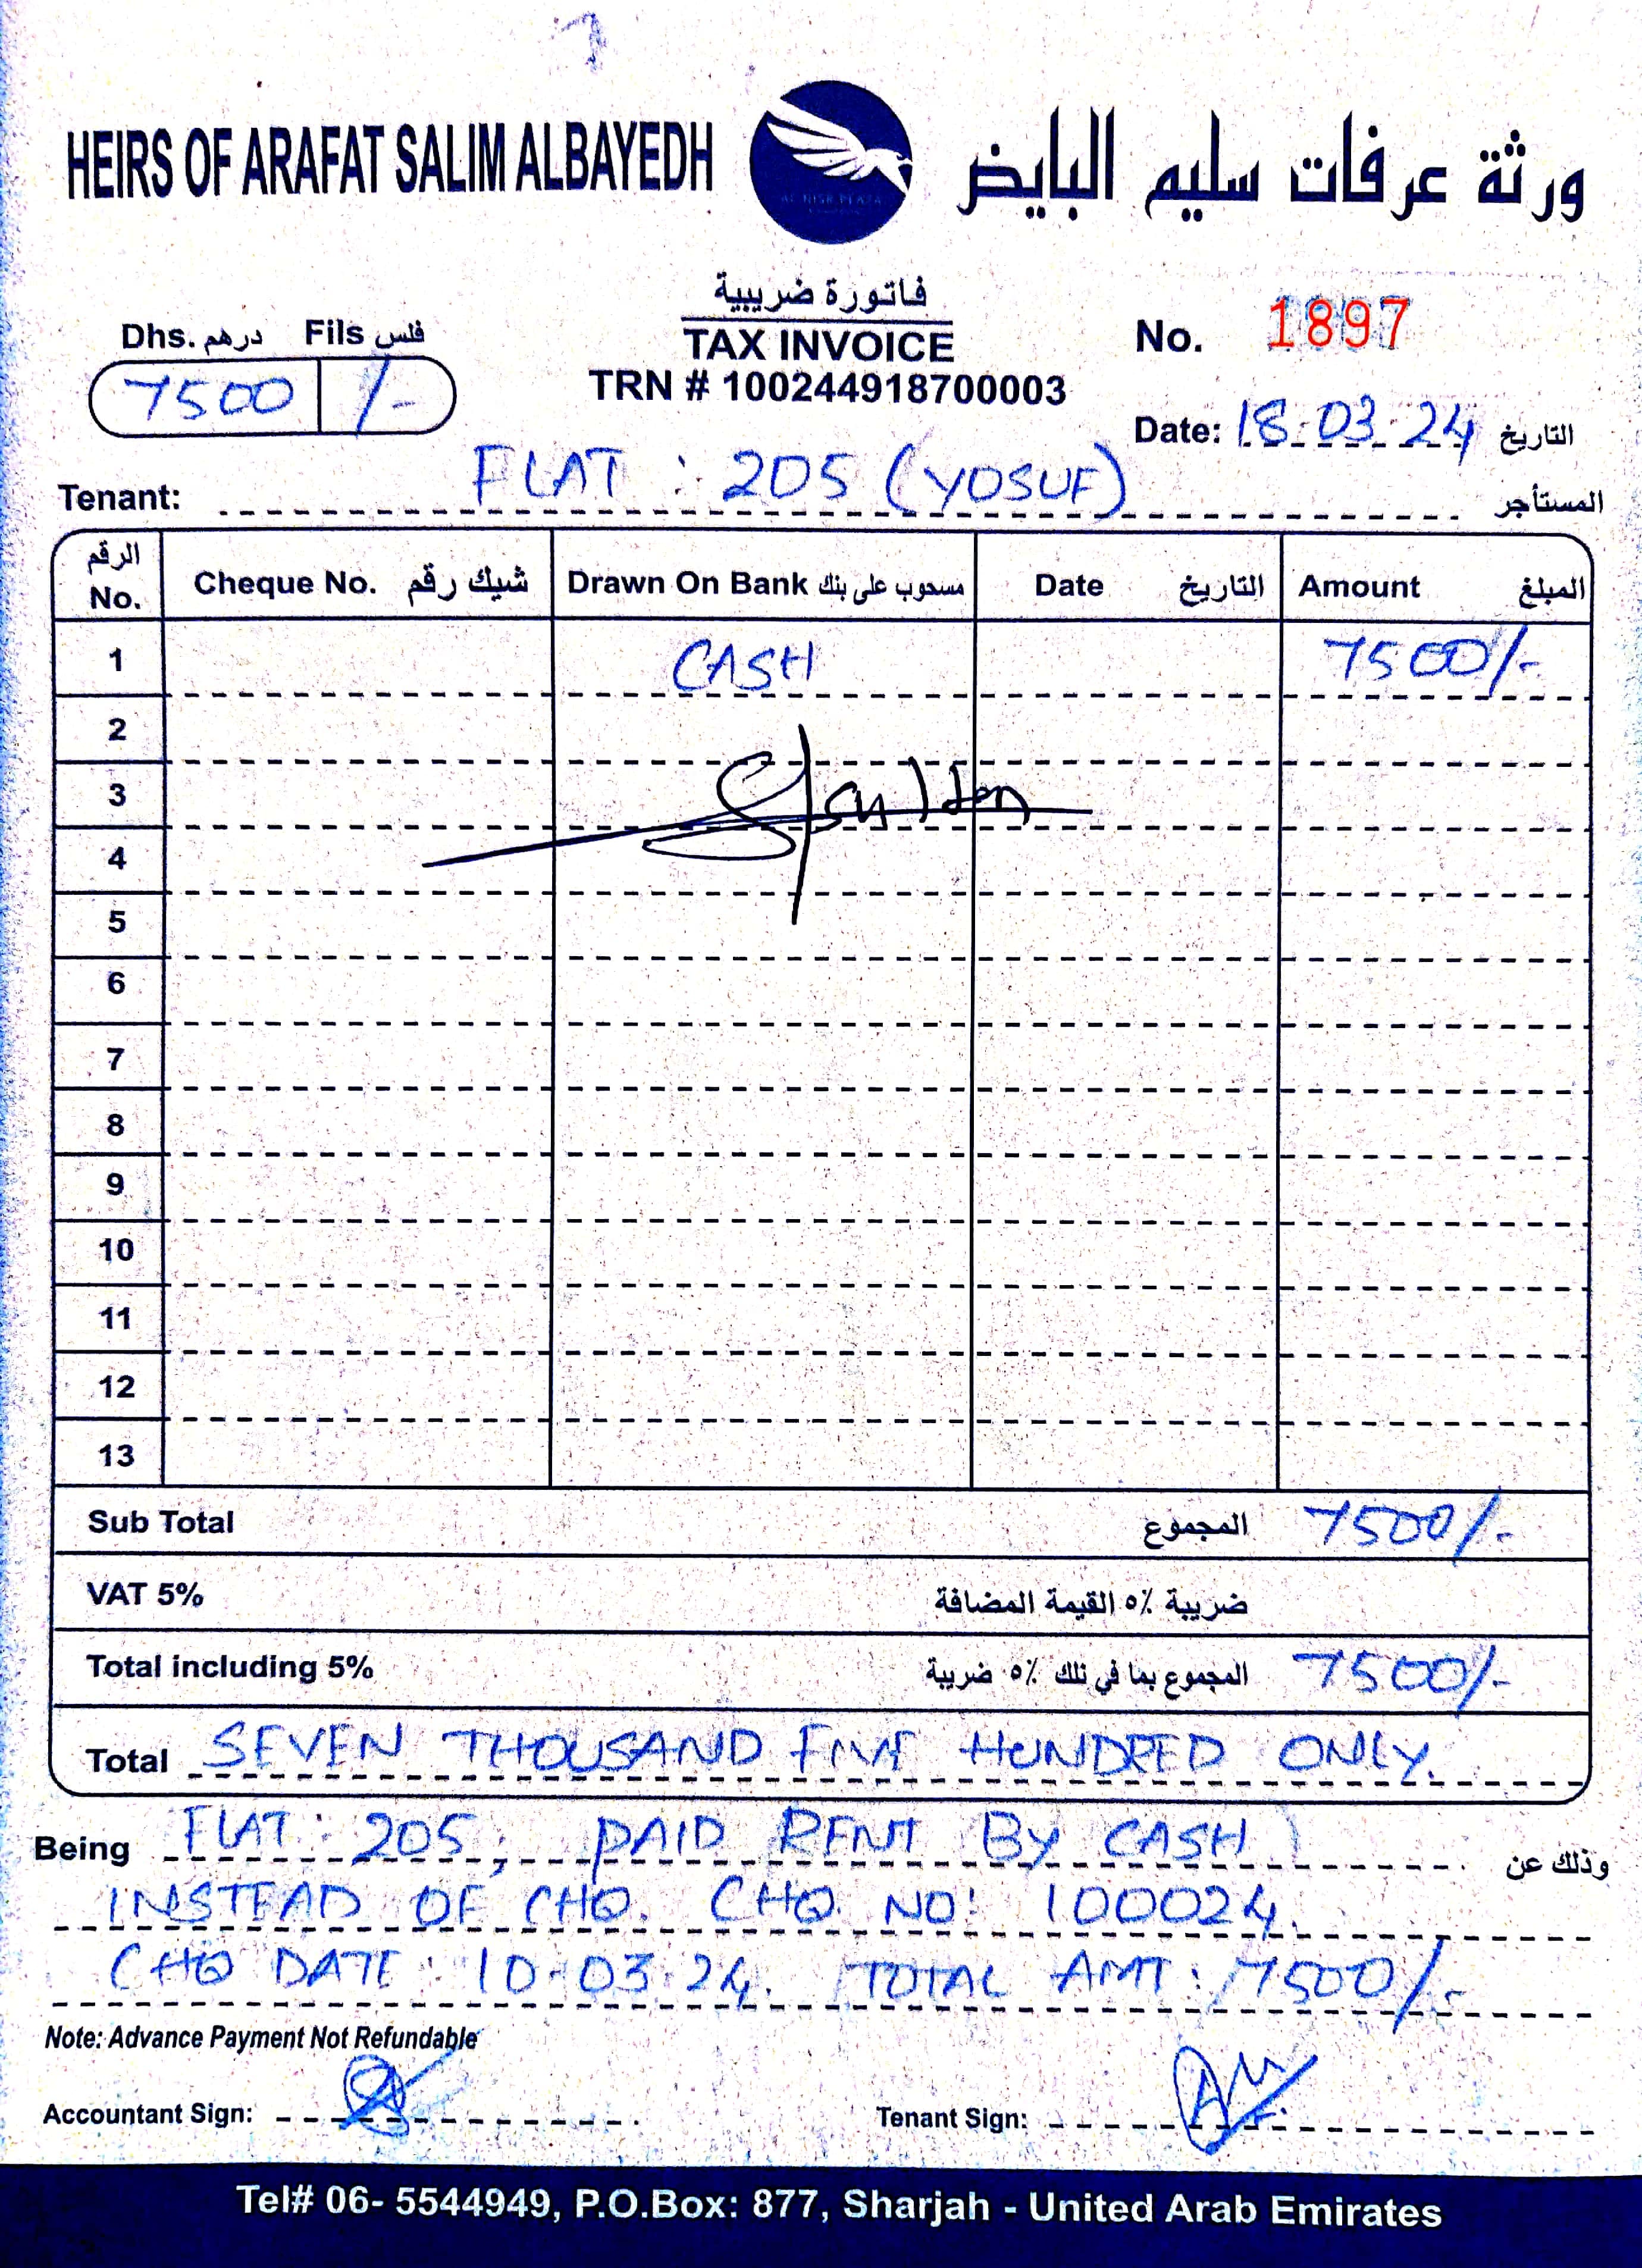 HEIRS OF ARAFAT SALIM ALBAYEDH
ورثة عرفات سليم البايض
AL NISR PLAZA
فاتورة ضريبية
TAX INVOICE
TRN # 100244918700003
Dhs. درهم Fils فلس
7500 /-
No. 1897
Date: 18.03.24 التاريخ
Tenant: FLAT : 205 (YOSUF) المستأجر
الرقم No. Cheque No. شيك رقم Drawn On Bank مسحوب على بنك Date التاريخ Amount المبلغ
1 CASH 7500/-
2
3
4
5
6
7
8
9
10
11
12
13
Sub Total المجموع 7500/-
VAT 5% ضريبة ٥٪ القيمة المضافة
Total including 5% المجموع بما في تلك ٥٪ ضريبة 7500/-
Total SEVEN THOUSAND FIVE HUNDRED ONLY.
Being FLAT: 205, PAID RENT BY CASH وذلك عن
INSTEAD OF CHQ. CHQ. NO: 100024.
CHQ DATE: 10-03.24. TOTAL AMT: 7500/-
Note: Advance Payment Not Refundable
Accountant Sign: Tenant Sign:
Tel# 06- 5544949, P.O.Box: 877, Sharjah - United Arab Emirates